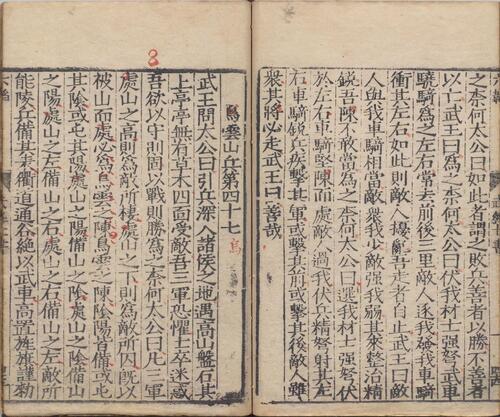 之柰何太公曰如此者謂之敗兵善者以勝不善者
以亡武王曰為之柰何太公曰伏我材士强弩武車
驍騎為之左右常去前後三里敵人逐我發我車騎
衝其左右如此則敵人擾亂吾走者自止武王曰敵
人與我車騎相當敵衆我少敵强我弱其來整治精
銳吾陳不敢當為之柰何太公曰選我材士强弩伏
於左右車騎堅陳而處敵人過我伏兵積弩射其左
右車騎銳兵疾擊其軍或擊其前或擊其後敵人雖
衆其將必走武王曰善哉
烏雲山兵第四十七
烏
武王問太公曰引兵深入諸侯之地遇高山盤石其
上亭亭無有草木四面受敵吾三軍恐懼士卒迷惑
8
吾欲以守則固以戰則勝為之柰何太公曰凡三軍
處山之高則為敵所棲處山之下則為敵所囚既以
被山而處必為烏雲之陳烏雲之陳陰陽皆備或屯
其陰或屯其陽處山之陽備山之陰處山之陰備山
之陽處山之左備山之右處山之右備山之左敵所
能陵兵備其表衢道通谷絶以武車高置旌旗謹勑